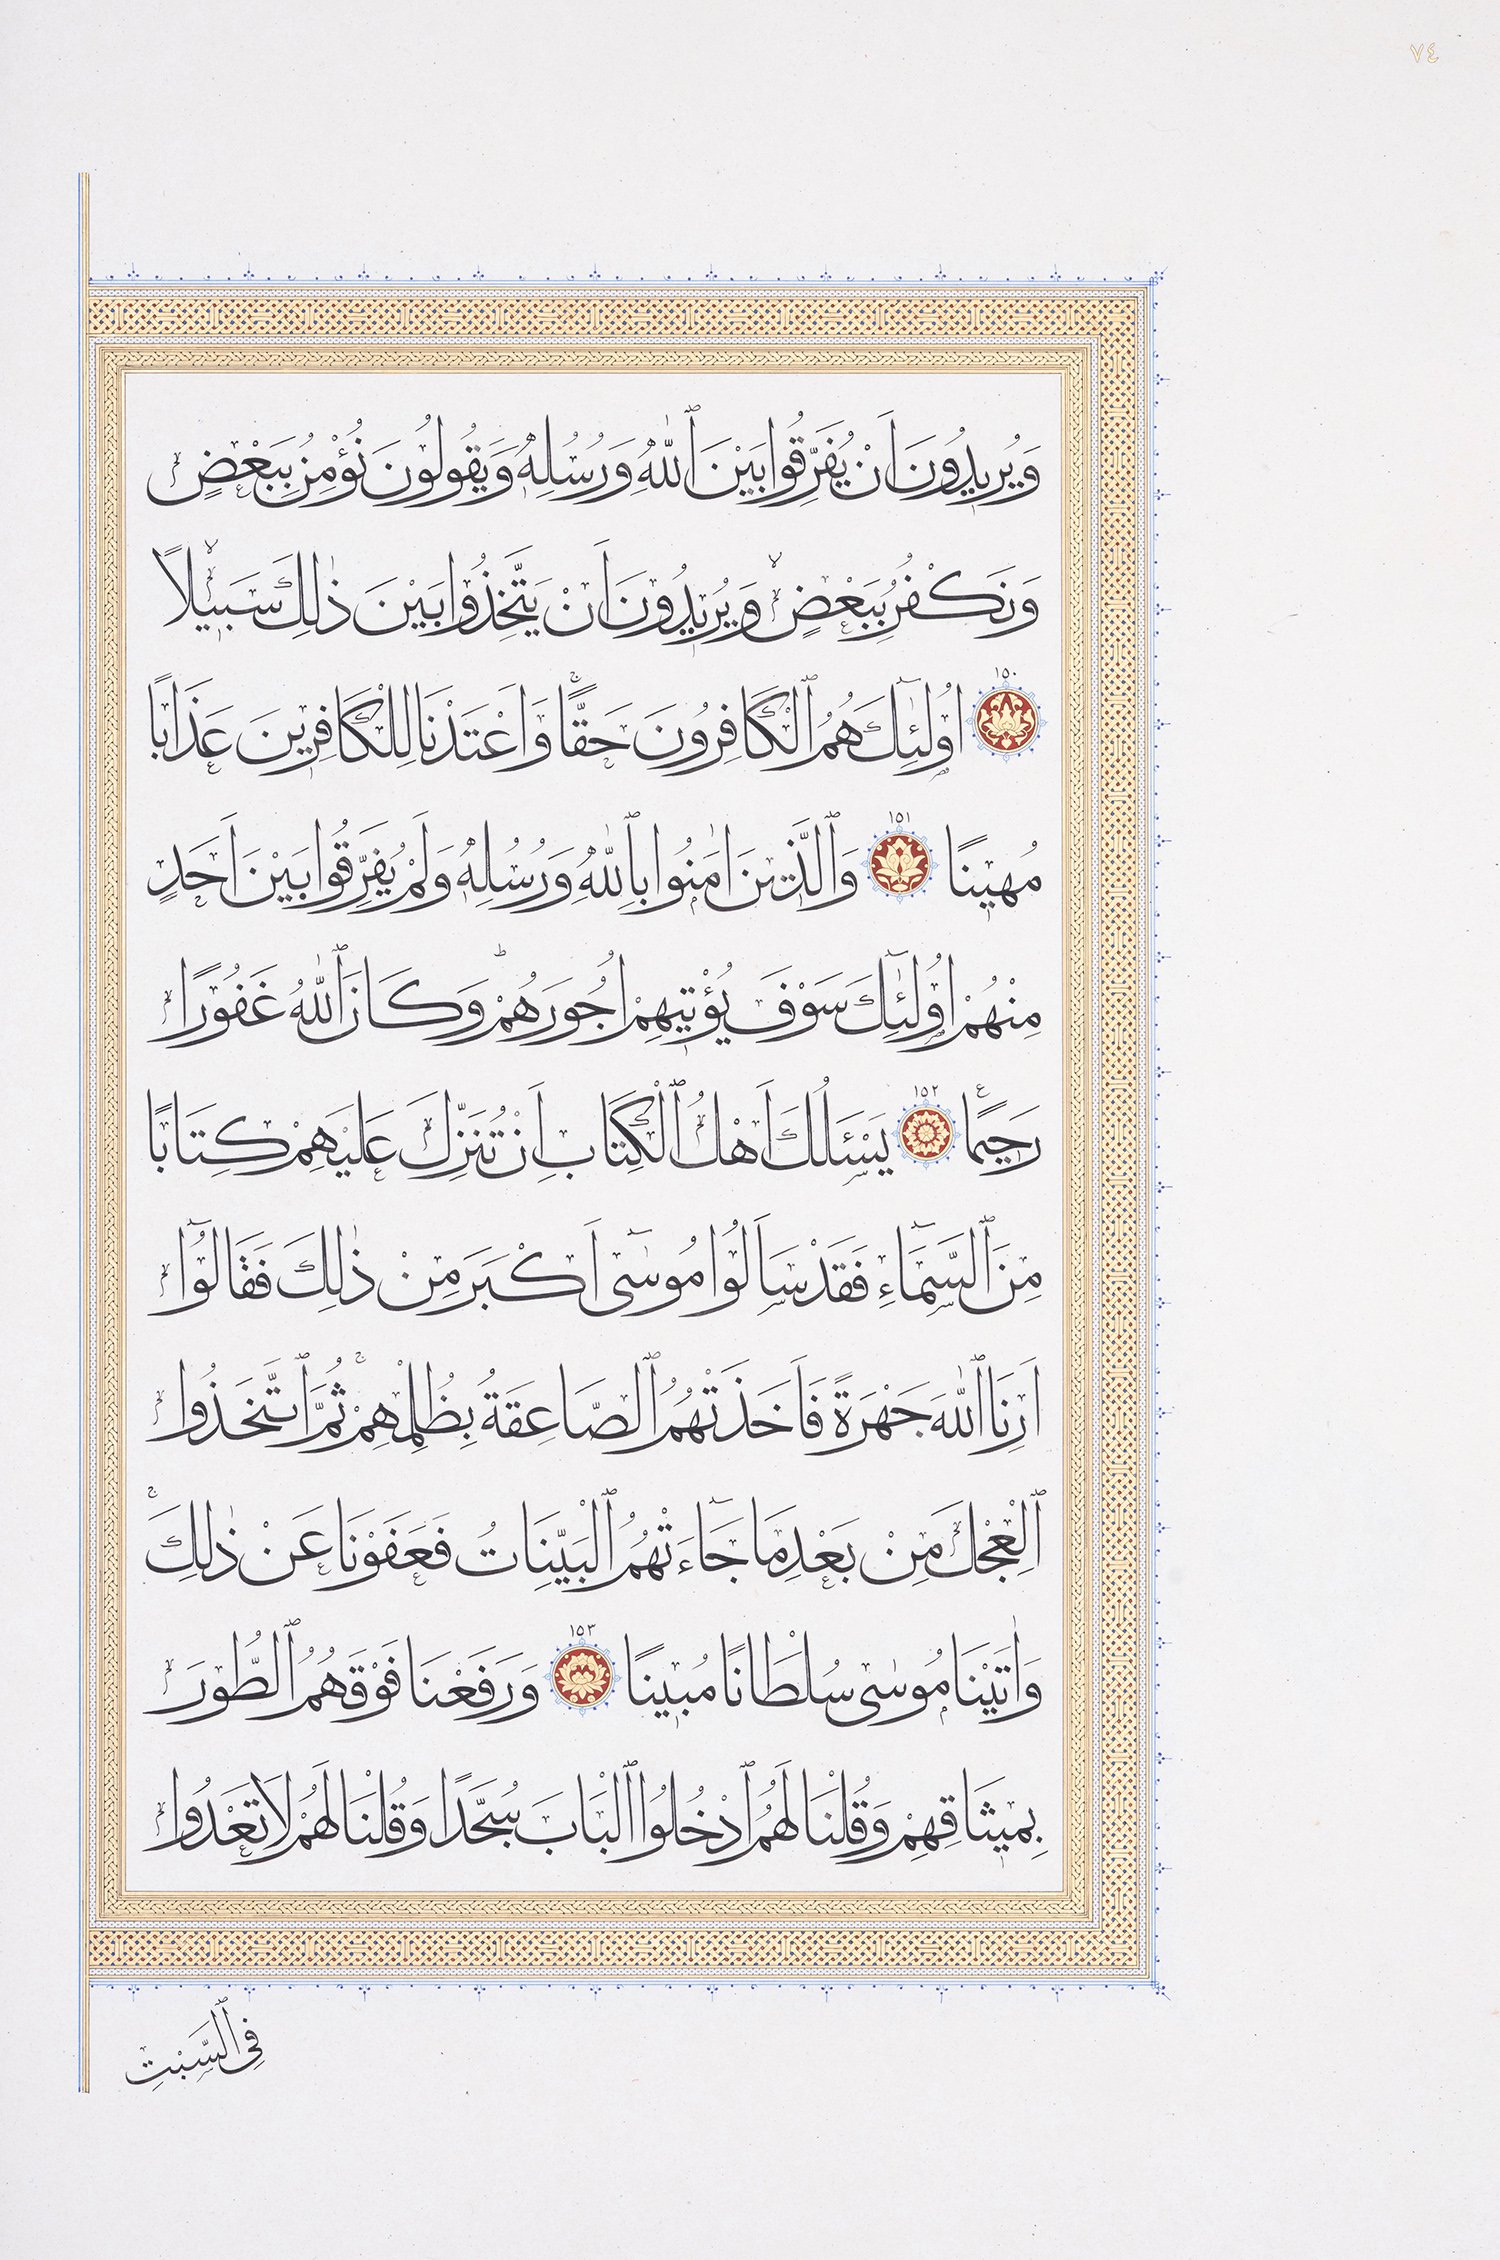 ٧٤
وَيُرِيدُونَ اَنْ يُفَرِّقُوا بَيْنَ ٱللّٰهِ وَرُسُلِهٖ وَيَقُولُونَ نُؤْمِنُ بِبَعْضٍ
وَنَكْفُرُ بِبَعْضٍۙ وَيُرِيدُونَ اَنْ يَتَّخِذُوا بَيْنَ ذٰلِكَ سَبِيلًاۙ
١٥٠ اُو۬لٰٓئِكَ هُمُ ٱلْكَافِرُونَ حَقًّاۚ وَاَعْتَدْنَا لِلْكَافِرِينَ عَذَابًا
مُهِينًا ١٥١ وَٱلَّذِينَ اٰمَنُوا بِٱللّٰهِ وَرُسُلِهٖ وَلَمْ يُفَرِّقُوا بَيْنَ اَحَدٍ
مِنْهُمْ اُو۬لٰٓئِكَ سَوْفَ يُؤْتِيهِمْ اُجُورَهُمْۜ وَكَانَ ٱللّٰهُ غَفُورًا
رَحِيمًا ١٥٢ يَسْـَٔلُكَ اَهْلُ ٱلْكِتَابِ اَنْ تُنَزِّلَ عَلَيْهِمْ كِتَابًا
مِنَ ٱلسَّمَٓاءِ فَقَدْ سَاَلُوا مُوسٰٓى اَكْبَرَ مِنْ ذٰلِكَ فَقَالُٓوا
اَرِنَا ٱللّٰهَ جَهْرَةً فَاَخَذَتْهُمُ ٱلصَّاعِقَةُ بِظُلْمِهِمْۚ ثُمَّ ٱتَّخَذُوا
ٱلْعِجْلَ مِنْ بَعْدِ مَا جَٓاءَتْهُمُ ٱلْبَيِّنَاتُ فَعَفَوْنَا عَنْ ذٰلِكَۚ
وَاٰتَيْنَا مُوسٰى سُلْطَانًا مُبِينًا ١٥٣ وَرَفَعْنَا فَوْقَهُمُ ٱلطُّورَ
بِمِيثَاقِهِمْ وَقُلْنَا لَهُمُ ٱدْخُلُوا ٱلْبَابَ سُجَّدًا وَقُلْنَا لَهُمْ لَا تَعْدُوا
فِى ٱلسَّبْتِ